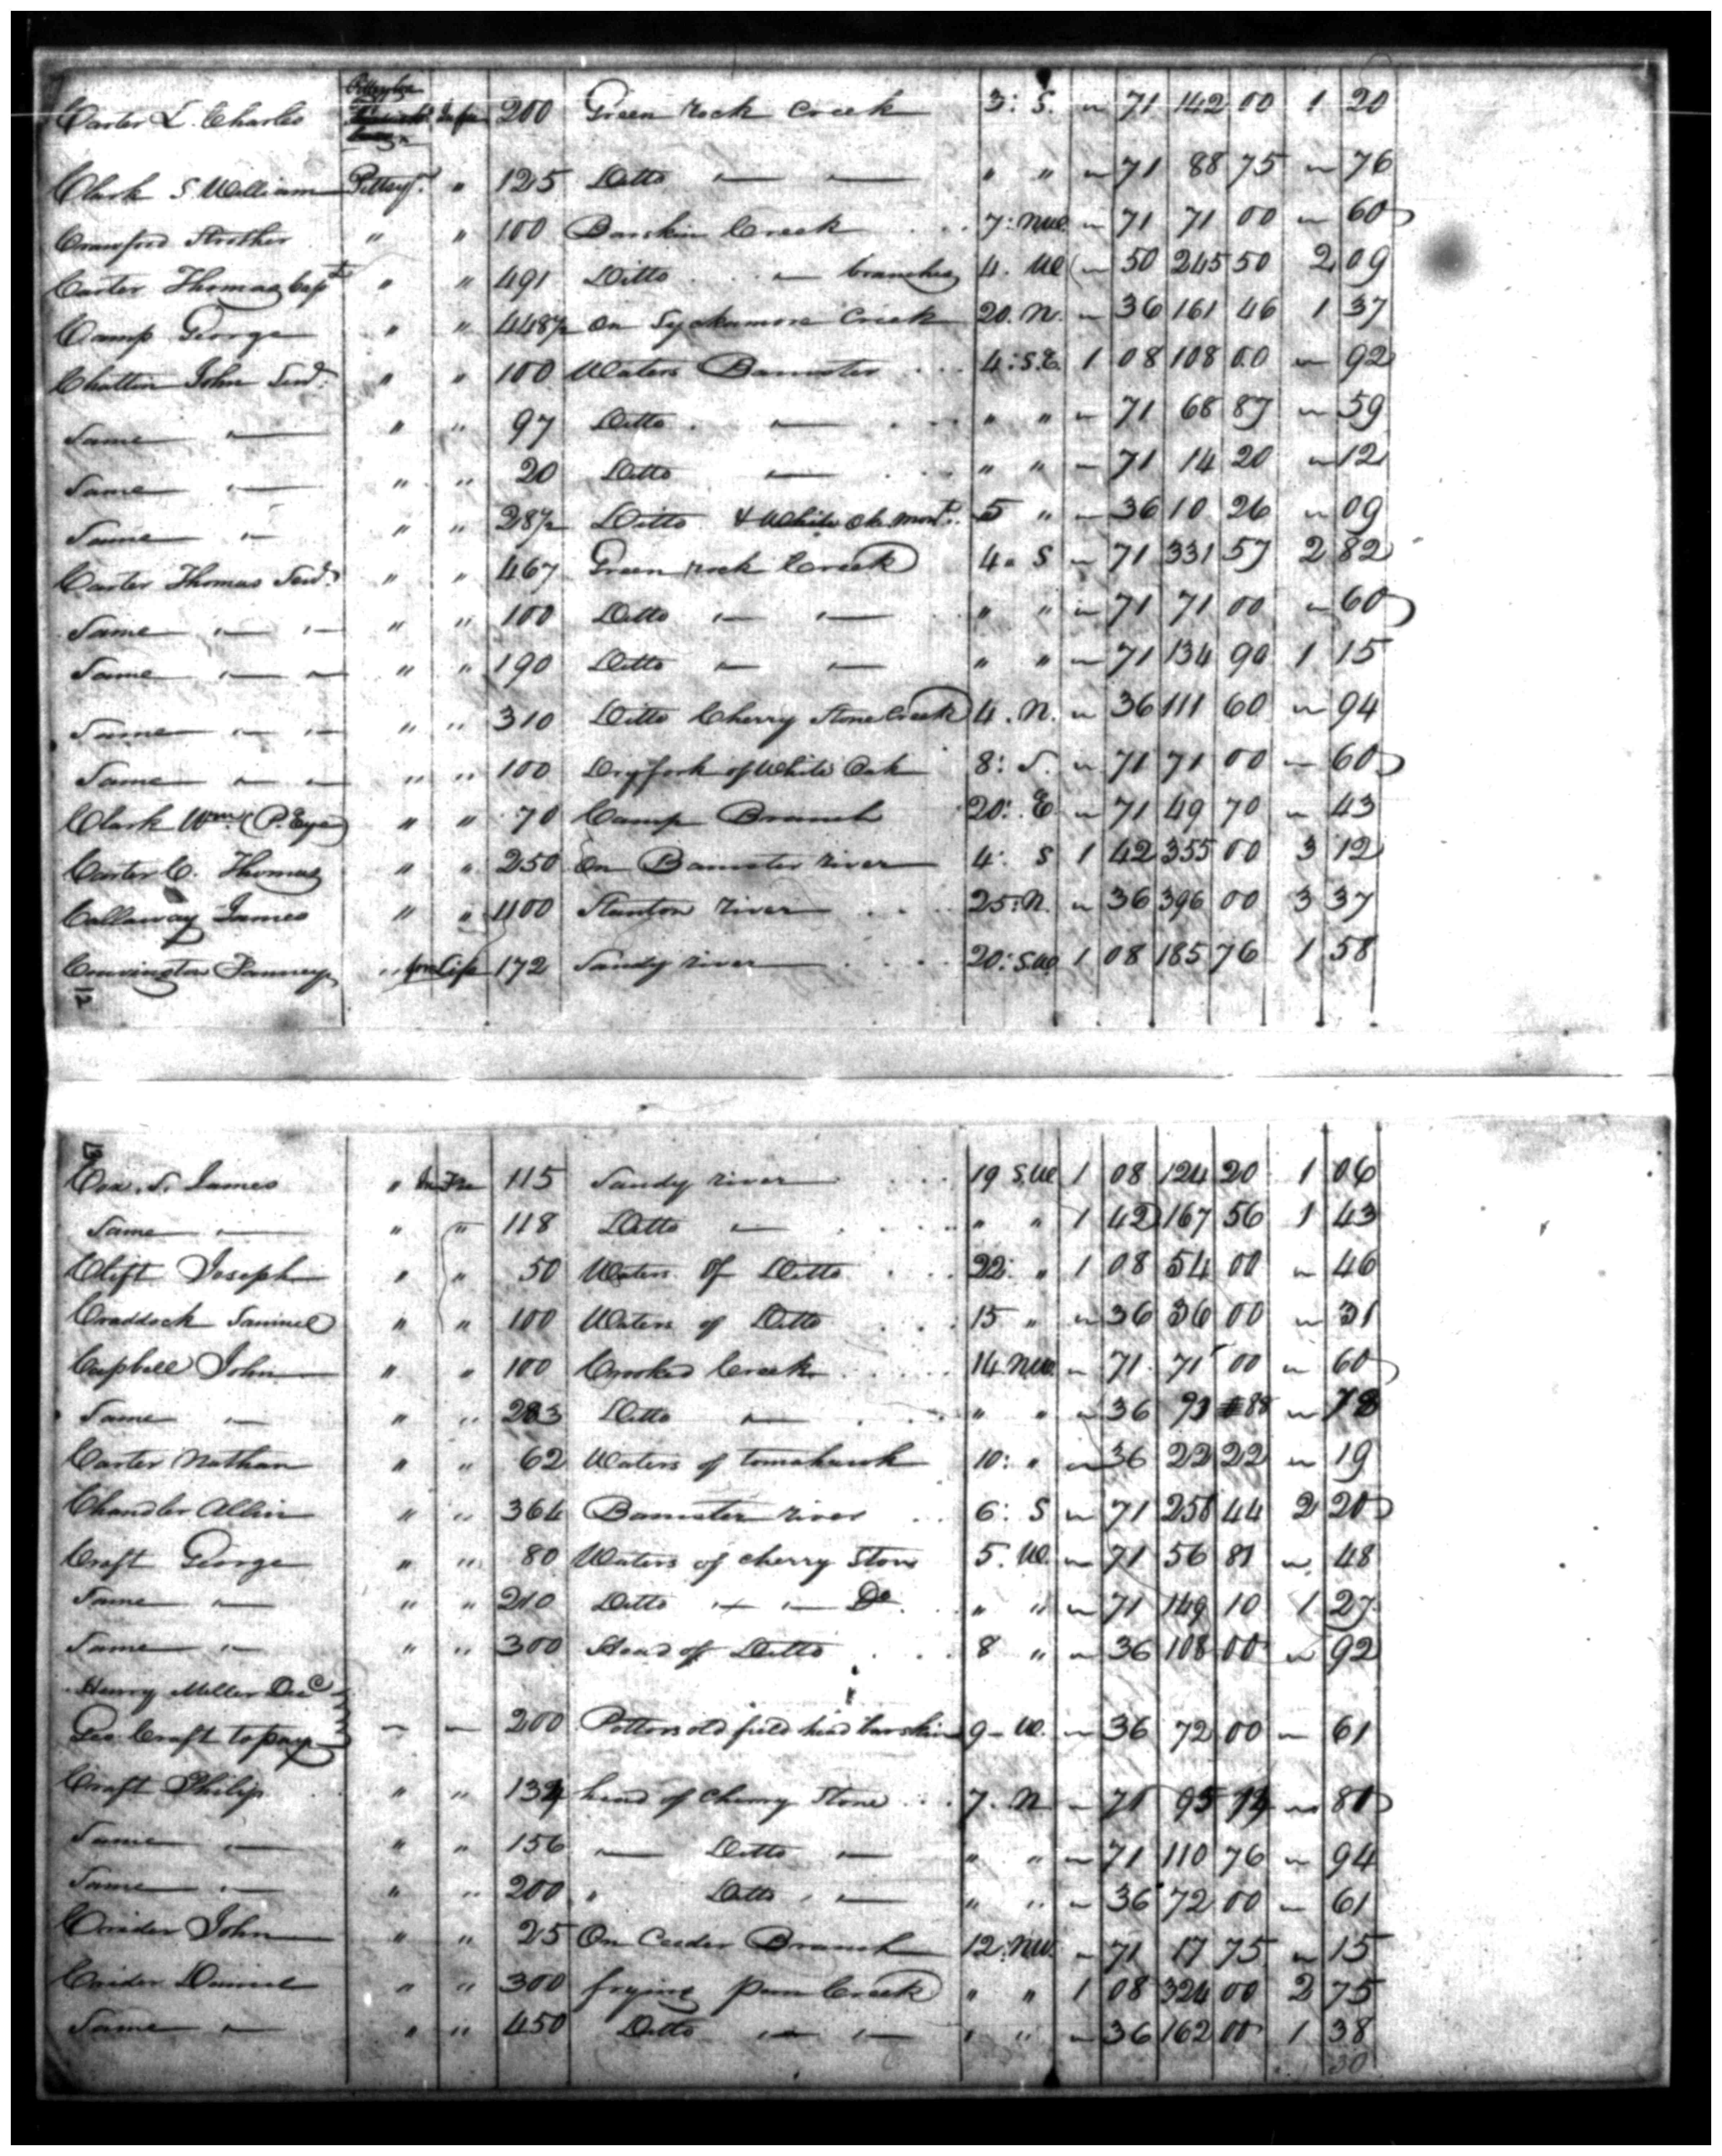 Pittsylva
Carter L. Charles In fee 200 Green rock Creek 3: S. " 71 142 00 1 20
Clark S William Pittsyl. " 125 Ditto " " " " 71 88 75 " 76
Crawford Strother " " 100 Barskin Creek 7: NW. " 71 71 00 " 60
Carter Thomas Capt " " 491 Ditto " branches 4. W " 50 245 50 2 09
Camp George " " 448½ On Syckamore Creek 20. N. " 36 161 46 1 37
Chattin John Senr. " " 100 Waters Banister 4: S.E. 1 08 108 00 " 92
Same " " " 97 Ditto " " " " 71 68 87 " 59
Same " " " 20 Ditto " " " " 71 14 20 " 12
Same " " " 28½ Ditto & White Ok mont. 5 " " 36 10 26 " 09
Carter Thomas Senr. " " 467 Green rock Creek 4. S " 71 331 57 2 82
Same " " " " 100 Ditto " " " " " 71 71 00 " 60
Same " " " " 190 Ditto " " " " " 71 134 90 1 15
Same " " " " 310 Ditto Cherry Stone Creek 4. N. " 36 111 60 " 94
Same " " " " 100 Dry fork of White Oak 8: S. " 71 71 00 " 60
Clark Wm. (P. Eye) " " 70 Camp Branch 20: E. " 71 49 70 " 43
Carter C. Thomas " " 250 On Banister river 4: S 1 42 355 00 3 12
Callaway James " " 1100 Stanton river 25: N. " 36 396 00 3 37
Covington " for Life 172 Sandy river 20: SW 1 08 185 76 1 58
12
13
Cox. S. James " In Fee 115 Sandy river 19 S.W 1 08 124 20 1 06
Same " " " 118 Ditto " " " 1 42 167 56 1 43
Clift Joseph " " 50 Waters of Ditto 22: " 1 08 54 00 " 46
Craddock Samuel " " 100 Waters of Ditto 15 " " 36 36 00 " 31
Capbell John " " 100 Crooked Creek 14 NW. " 71 71 00 " 60
Same " " " 203 Ditto " " " " 36 93 88 " 78
Carter Nathan " " 62 Waters of tomahawk 10: " " 36 22 22 " 19
Chandler Allin " " 364 Banister river 6: S " 71 258 44 2 20
Craft George " " 80 Waters of cherry Stone 5. W. " 71 56 81 " 48
Same " " " 210 Ditto " " Do. " " " 71 149 10 1 27
Same " " " 300 Head of Ditto 8 " " 36 108 00 " 92
Henry Miller Decd
Geo. Craft to pay " " 200 Pottors old field head barskin 9 W. " 36 72 00 " 61
Craft Philip " " 134 head of Cherry Stone 7. N " 71 95 14 " 81
Same " " " 156 " Ditto " " " " 71 110 76 " 94
Same " " " 200 " Ditto " " " " 36 72 00 " 61
Crider John " " 25 On Ceeder Branch 12: NW. " 71 17 75 " 15
Crider Daniel " " 300 frying pan Creek " " 1 08 324 00 2 75
Same " " " 450 Ditto " " " " " 36 162 00 1 38
30